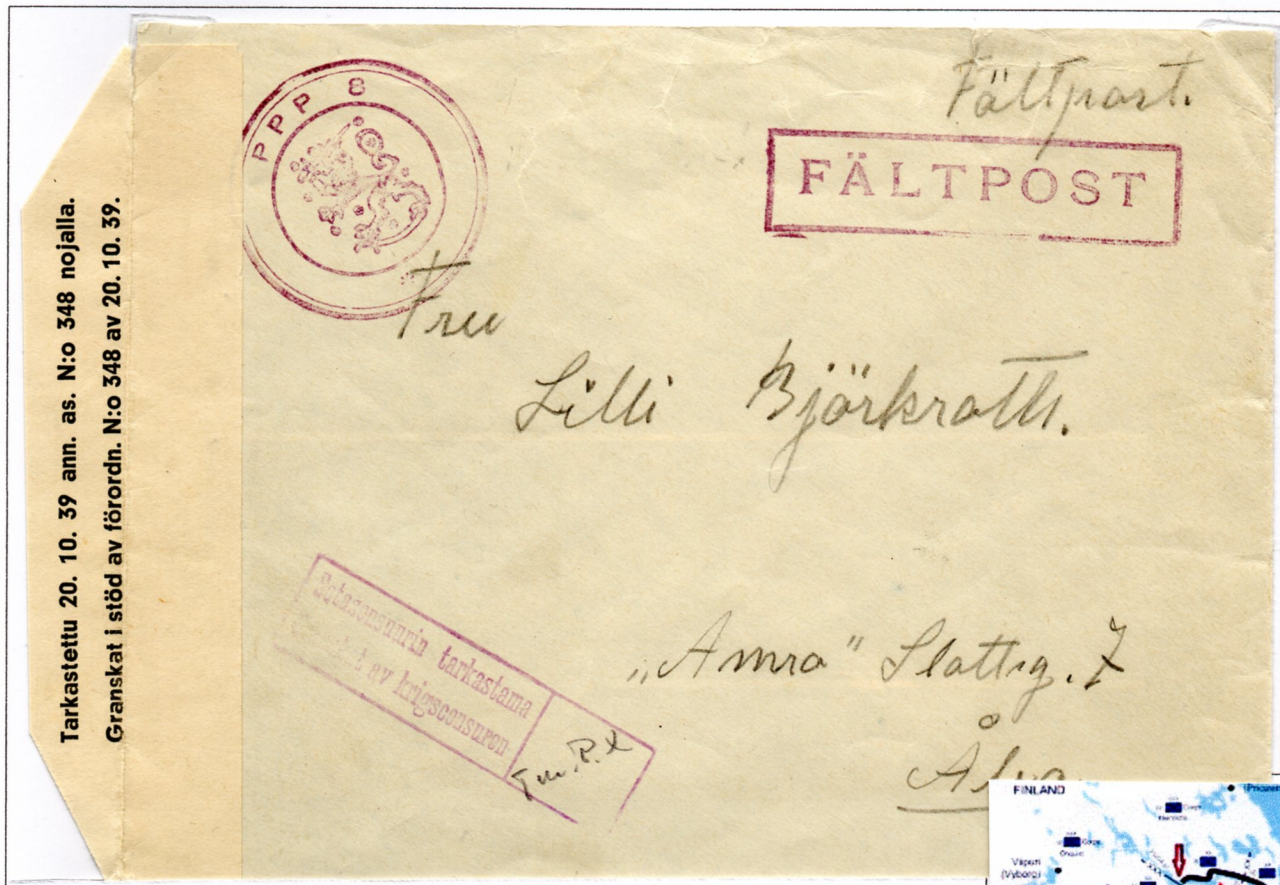 Tarkastettu 20. 10. 39 ann. as. N:o 348 nojalla.
Granskat i stöd av förordn. N:o 348 av 20. 10. 39.
PPP 8
Fältpost.
FÄLTPOST
Fru
Lilli Björkroth.
Sotasensuurin tarkastama
av krigscensuren
„Amra" Slottsg. 7
FINLAND
Viipuri
(Vyborg)